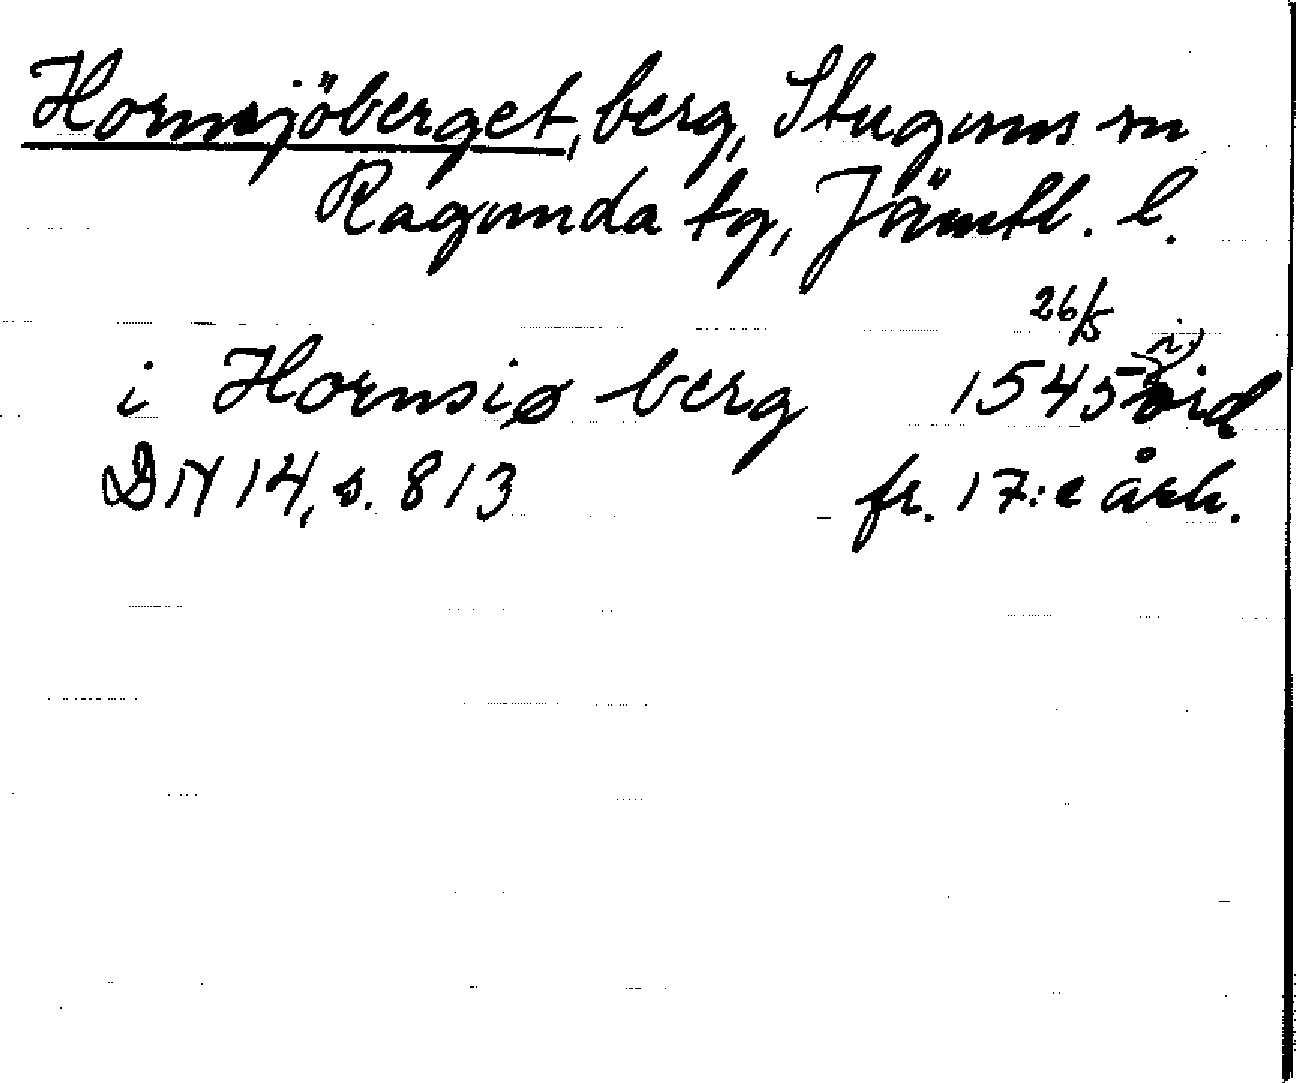 Hornsjöberget, berg, Stuguns sn
Ragunda tg, Jämtl. l.
26/5
i Hornsiø berg 1545 i vid
DN 14, s. 813 fr. 17:e årh.